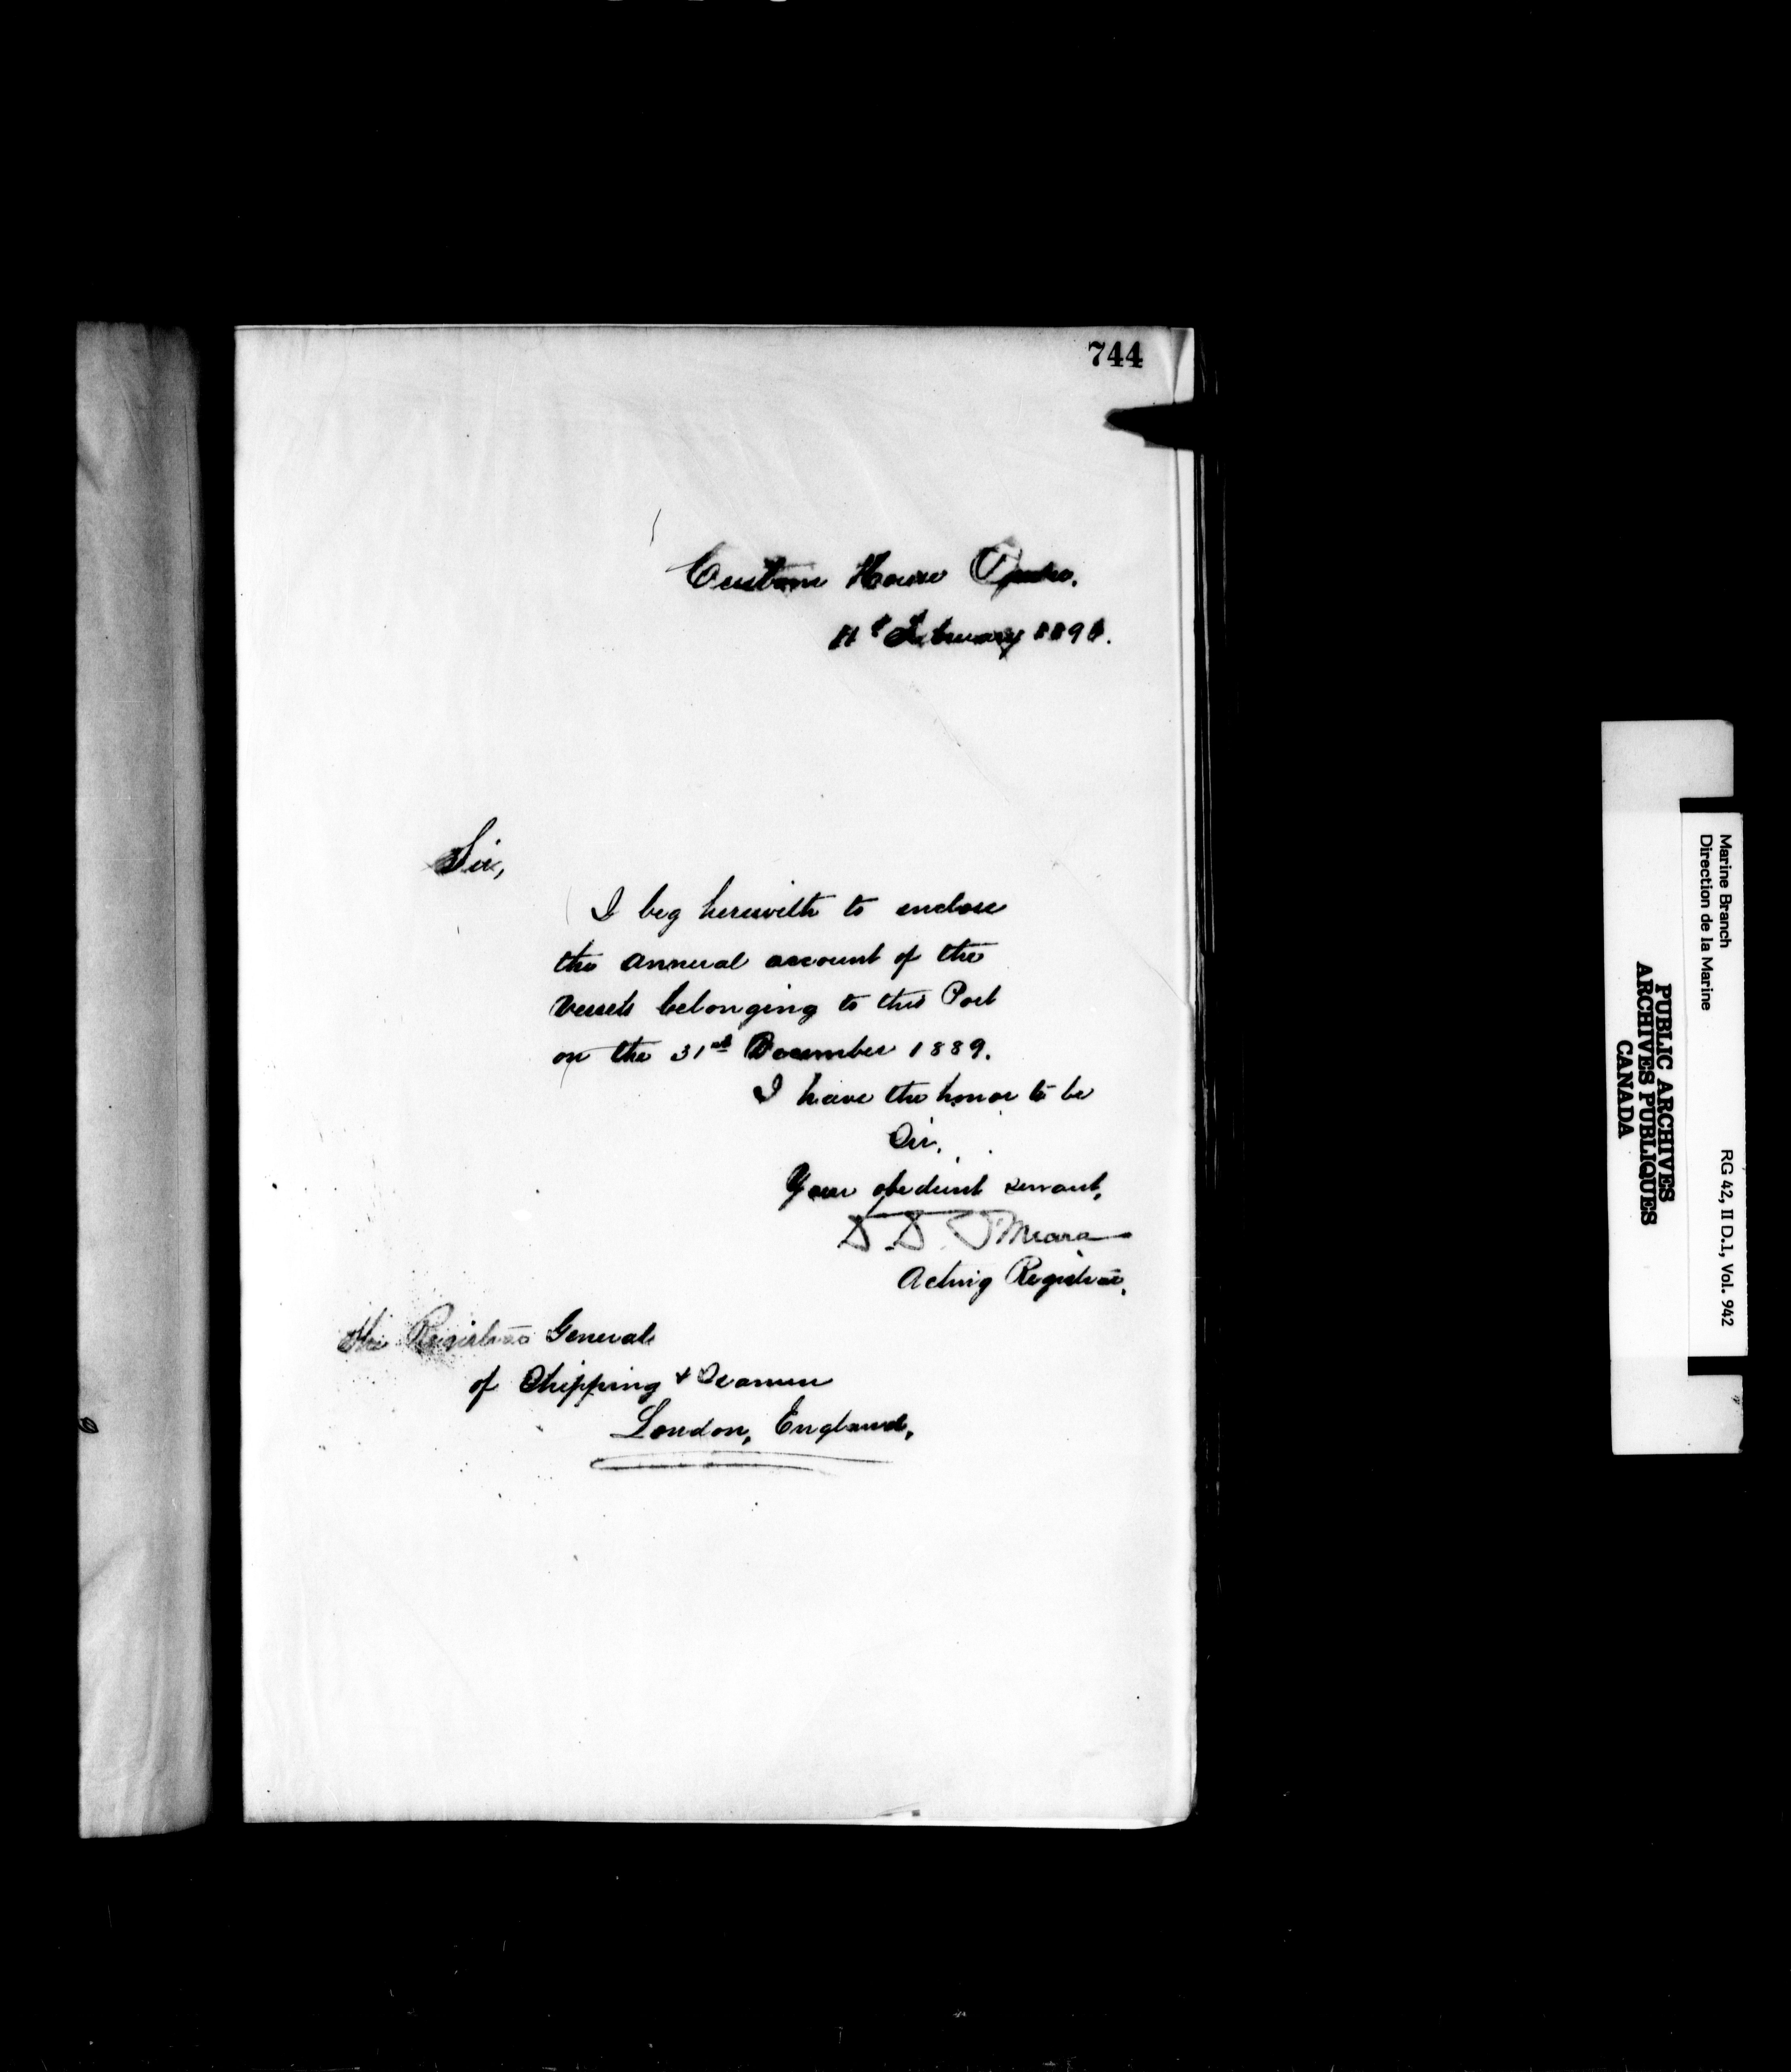 744
Custom House Quebec.
11th February 1890.
Sir,
I beg herewith to enclose
the annual account of the
vessels belonging to this Port
on the 31st December 1889.
I have the honor to be
Sir,
Your obedient servant,
D. D. O'Meara
Acting Registrar.
The Registrar General
of Shipping & Seamen
London, England,
Marine Branch
Direction de la Marine
RG 42, II D.1, Vol. 942
PUBLIC ARCHIVES
ARCHIVES PUBLIQUES
CANADA